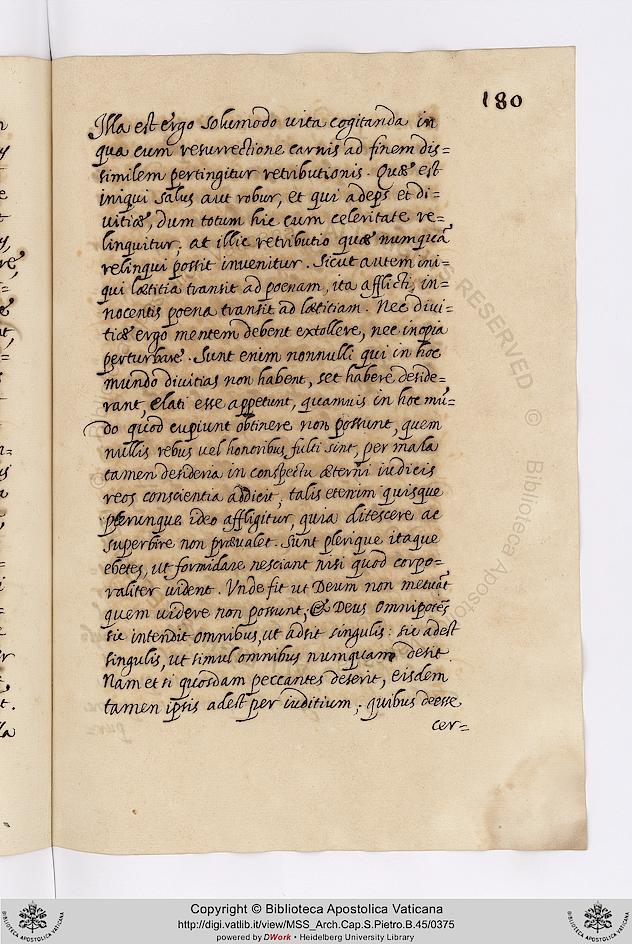 180
Illa est ergo solummodo uita cogitanda in
qua cum resurrectione carnis ad finem dis=
similem pertingitur retributionis. Quæ est
iniqui salus aut robur, et qui adeps et di=
uitiæ, dum totum hic cum celeritate re=
linquitur; at illic retributio quæ numquã
relinqui possit inuenitur. Sicut autem ini=
qui lætitia transit ad poenam, ita afflicti, in=
nocentis poena transit ad lætitiam. Nec diui=
tiæ ergo mentem debent extollere, nec inopia
perturbare. Sunt enim nonnulli qui in hoc
mundo diuitias non habent, set habere deside=
rant, elati esse appetunt, quamuis in hoc mũ=
do quod cupiunt obtinere non possunt, quem
nullis rebus uel honoribus fulti sint, per mala
tamen desideria in conspectu æterni iudicis
reos conscientia addicit; talis etenim quisque
plerunque ideo affligitur, quia ditescere ac
superbire non præualet. Sunt plerique itaque
ebetes, ut formidare nesciant nisi quod corpo=
raliter uident. Vnde fit ut Deum non metuãt
quem uidere non possunt; & Deus omnipotẽs
sic intendit omnibus, ut adsit singulis: sic adest
singulis, ut simul omnibus numquam desit.
Nam et si quosdam peccantes deserit, eisdem
tamen ipsis adest per iuditium; quibus deesse
cer=
RESERVED © Biblioteca Aposto
Copyright © Biblioteca Apostolica Vaticana
http://digi.vatlib.it/view/MSS_Arch.Cap.S.Pietro.B.45/0375
powered by DWork • Heidelberg University Library